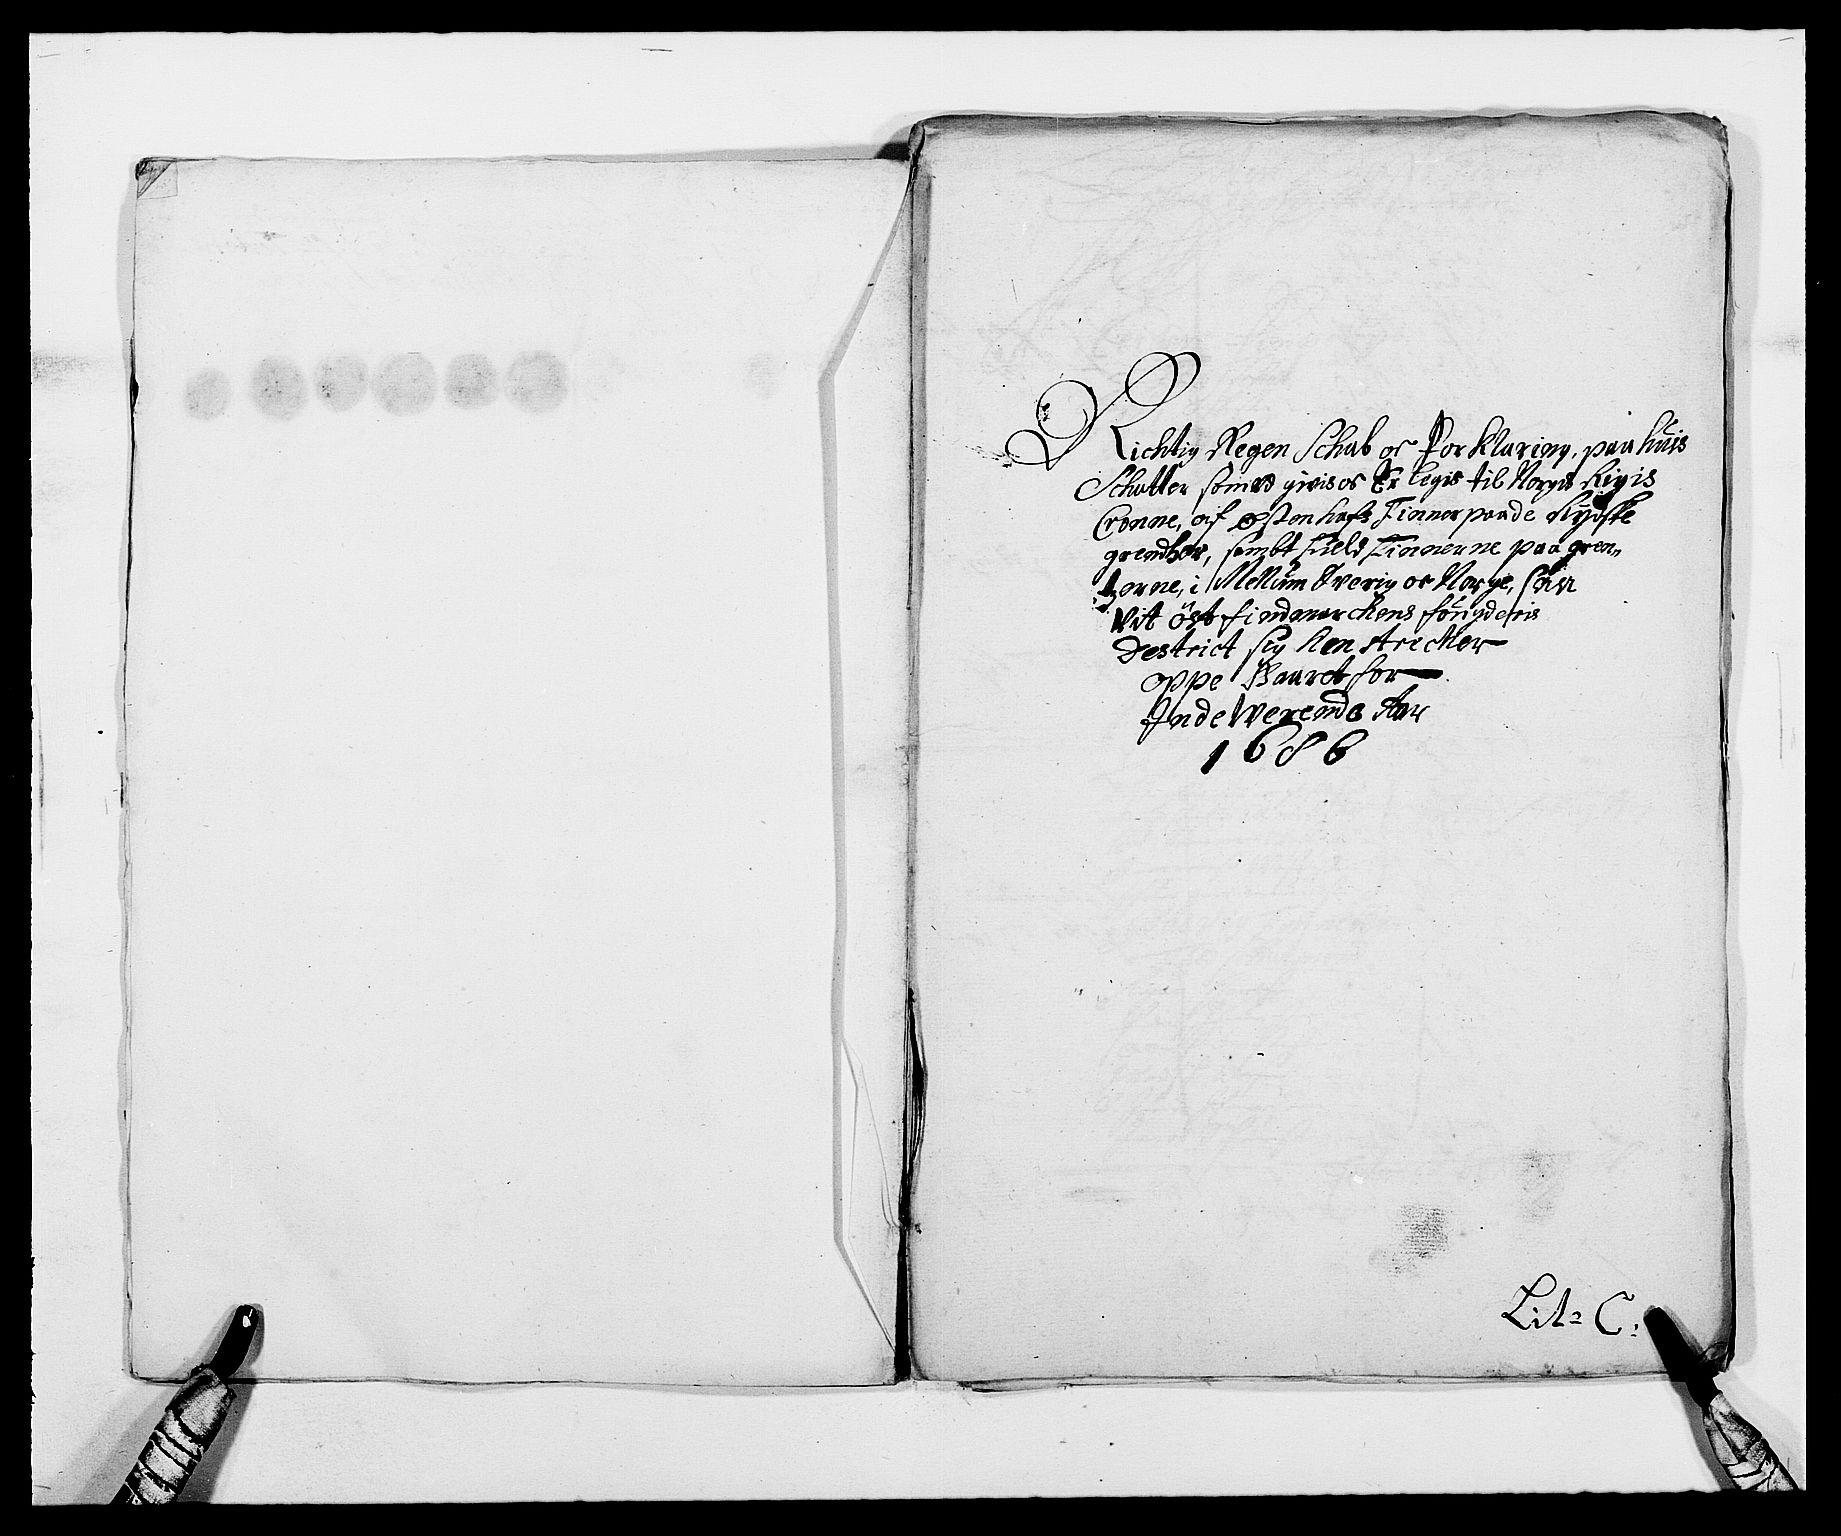 Richtig Regen Schab og Forklaring, paa huis
Schatter som givis og Er legis til Norgis Rigis
Cronne, aif østen hafs Finner paa de Rydske
grendser, sambt field Finnerne paa gren¬
tzerne, i Mellum Sverig og Norge, saa
Vit öst findmarckens fougderis
District sig hen strecker
oppe Baaret for
Inde Werende Aar
1686
Lit: C: